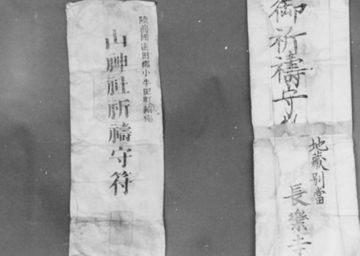 御祈禱守
地蔵別當
長樂寺
陸前國遠田郡小牛田町鎮座
山神社祈禱守符